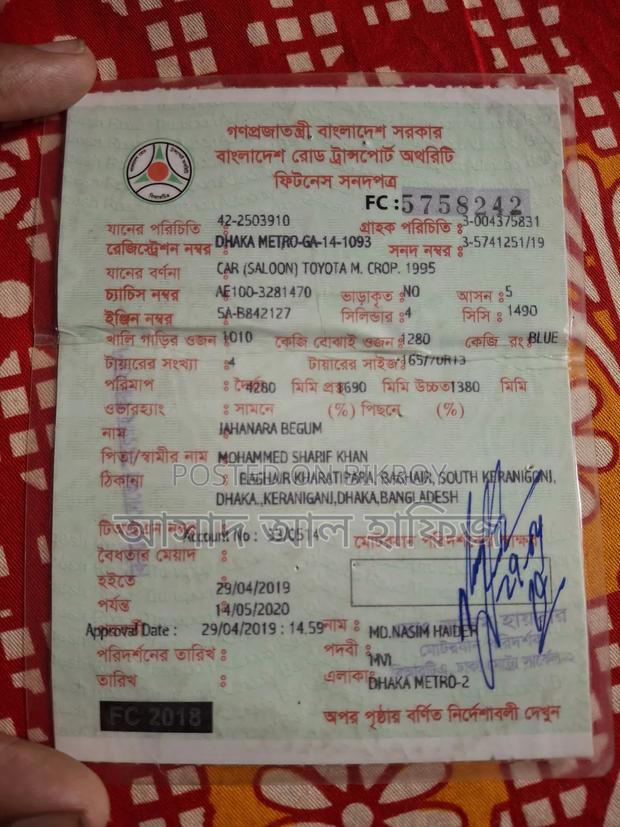 গণপ্রজাতন্ত্রী বাংলাদেশ সরকার
বাংলাদেশ রোড ট্রান্সপোর্ট অথরিটি
ফিটনেস সনদপত্র
FC : 5758242
যানের পরিচিতি : 42-2503910 গ্রাহক পরিচিতি : 3-004375831
রেজিস্ট্রেশন নম্বর : DHAKA METRO-GA-14-1093 সনদ নম্বর : 3-5741251/19
যানের বর্ণনা : CAR (SALOON) TOYOTA M. CROP. 1995
চ্যাচিস নম্বর : AE100-3281470 ভাড়াকৃত : NO আসন : 5
ইঞ্জিন নম্বর : 5A-B842127 সিলিন্ডার : 4 সিসি : 1490
খালি গাড়ির ওজন : 1010 কেজি বোঝাই ওজন : 1280 কেজি রং : BLUE
টায়ারের সংখ্যা : 4 টায়ারের সাইজ : 165/70R13
পরিমাপ : দৈর্ঘ্য 4280 মিমি প্রস্থ 1690 মিমি উচ্চতা 1380 মিমি
ওভারহ্যাং : সামনে (%) পিছনে (%)
নাম : JAHANARA BEGUM
পিতা/স্বামীর নাম : MOHAMMED SHARIF KHAN
ঠিকানা : BAGHAIR KHARATIPARA, BAGHAIR, SOUTH KERANIGONJ,
DHAKA.,KERANIGANJ,DHAKA,BANGLADESH
POSTED ON BIKROY
আসাদ আল হাফিজ
Account No : 33/C514
মোটরযান
বৈধতার মেয়াদ :
হইতে : 29/04/2019
পর্যন্ত : 14/05/2020
Approval Date : 29/04/2019 : 14.59 নাম : MD.NASIM HAIDER
পরিদর্শনের তারিখ : পদবী : MVI
তারিখ : এলাকা : DHAKA METRO-2
FC 2018
অপর পৃষ্ঠায় বর্ণিত নির্দেশাবলী দেখুন